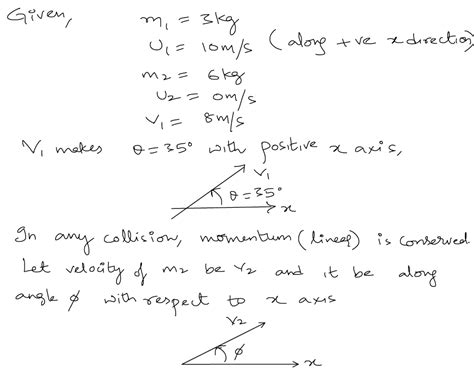 Given, m₁ = 3kg
U₁ = 10m/s (along +ve x direction)
m₂ = 6kg
U₂ = 0m/s
V₁ = 8m/s
V₁ makes θ = 35° with positive x axis,
V₁
θ = 35°
x
In any collision, momentum (linear) is conserved
Let velocity of m₂ be V₂ and it be along
angle ϕ with respect to x axis
V₂
ϕ
x